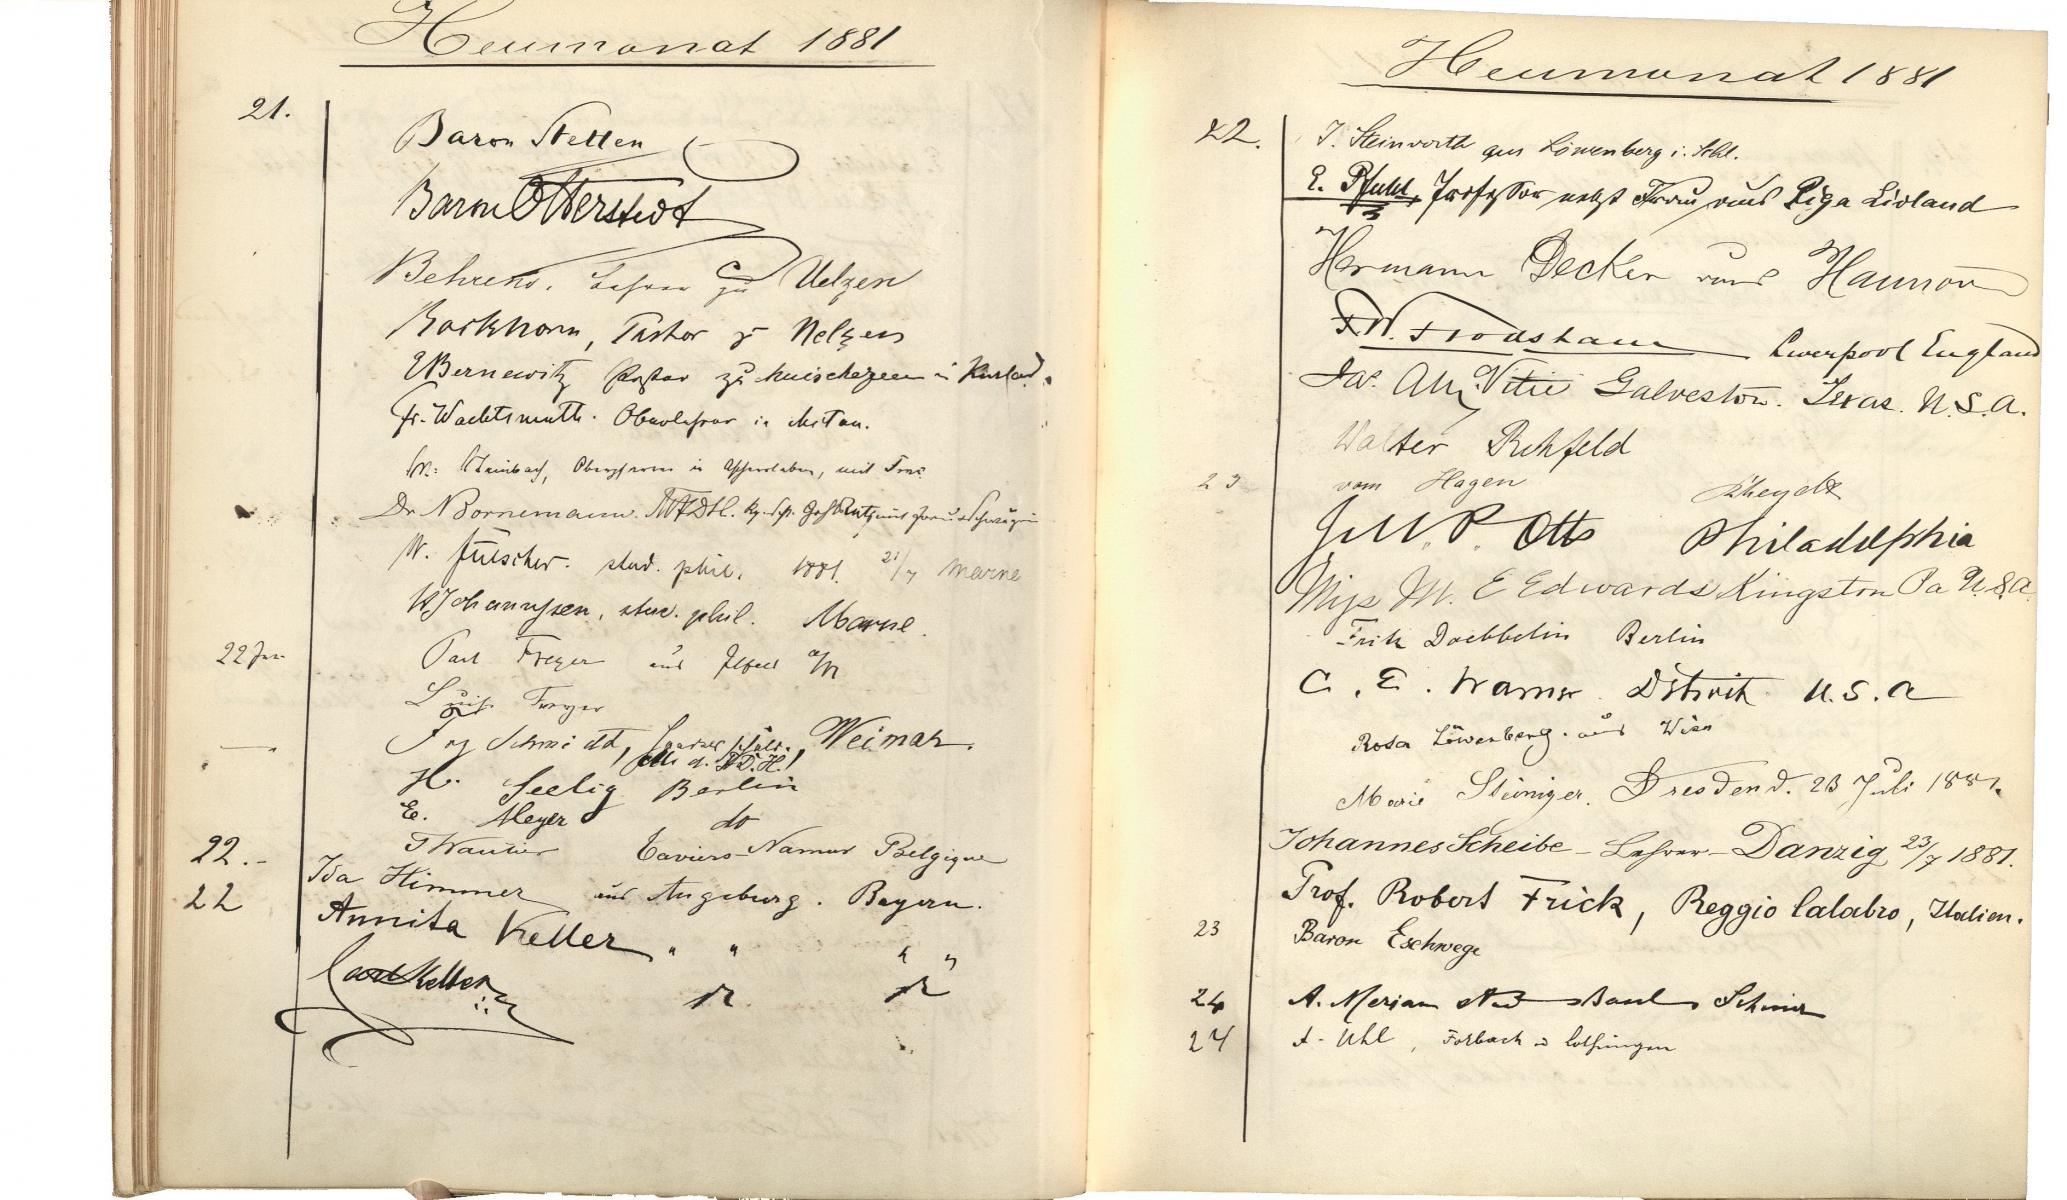 Heumonat 1881
21.
Baron Stetten
Baron Otterstedt
Behrens, Lehrer zu Uelzen
Pastor z Uelzen
Bernewitz Pastor zu in Kurland.
Fr. Wachtsmuth. Oberlehrer in Mitau.
in Aschersleben, mit Frau
Dr Bornemann.
W. stud. phil. 1881. 21/7 Marne
W Johannssen, stud. phil. Marne.
22
Paul Freyer aus a/M
Freyer
Schmidt, Weimar.
H. Seelig Berlin
E. Meyer do
22.- Taviers-Namur Belgique
22 Ida Himmer aus Augsburg. Bayern.
Annita Keller " " " "
Carl Keller
Heumonat 1881
22.
J. Steinvorth aus Löwenberg i. Schl.
E. Pfuhl, Professor nebst Frau aus Riga Livland
Hermann Decker aus Hannover
F.W. Frodsham Liverpool England
Jas. Galveston. Texas. U.S.A.
Walter Rehfeld
23
vom Hagen Rheydt
J. M. P. Otts Philadelphia
Miss M. E Edwards Kingston Pa U.S.A.
Fritz Doebbelin Berlin
C. E. Warner Detroit U.S.A
Rosa Löwenberg. aus Wien
Marie Steiniger. Dresden d. 23 Juli 1881.
Johannes Scheibe - Lehrer - Danzig 23/7 1881.
Prof. Robert Frick, Reggio Calabro, Italien.
23 Baron Eschwege
24 A. Merian
24 A. Uhl, Forbach Lothringen